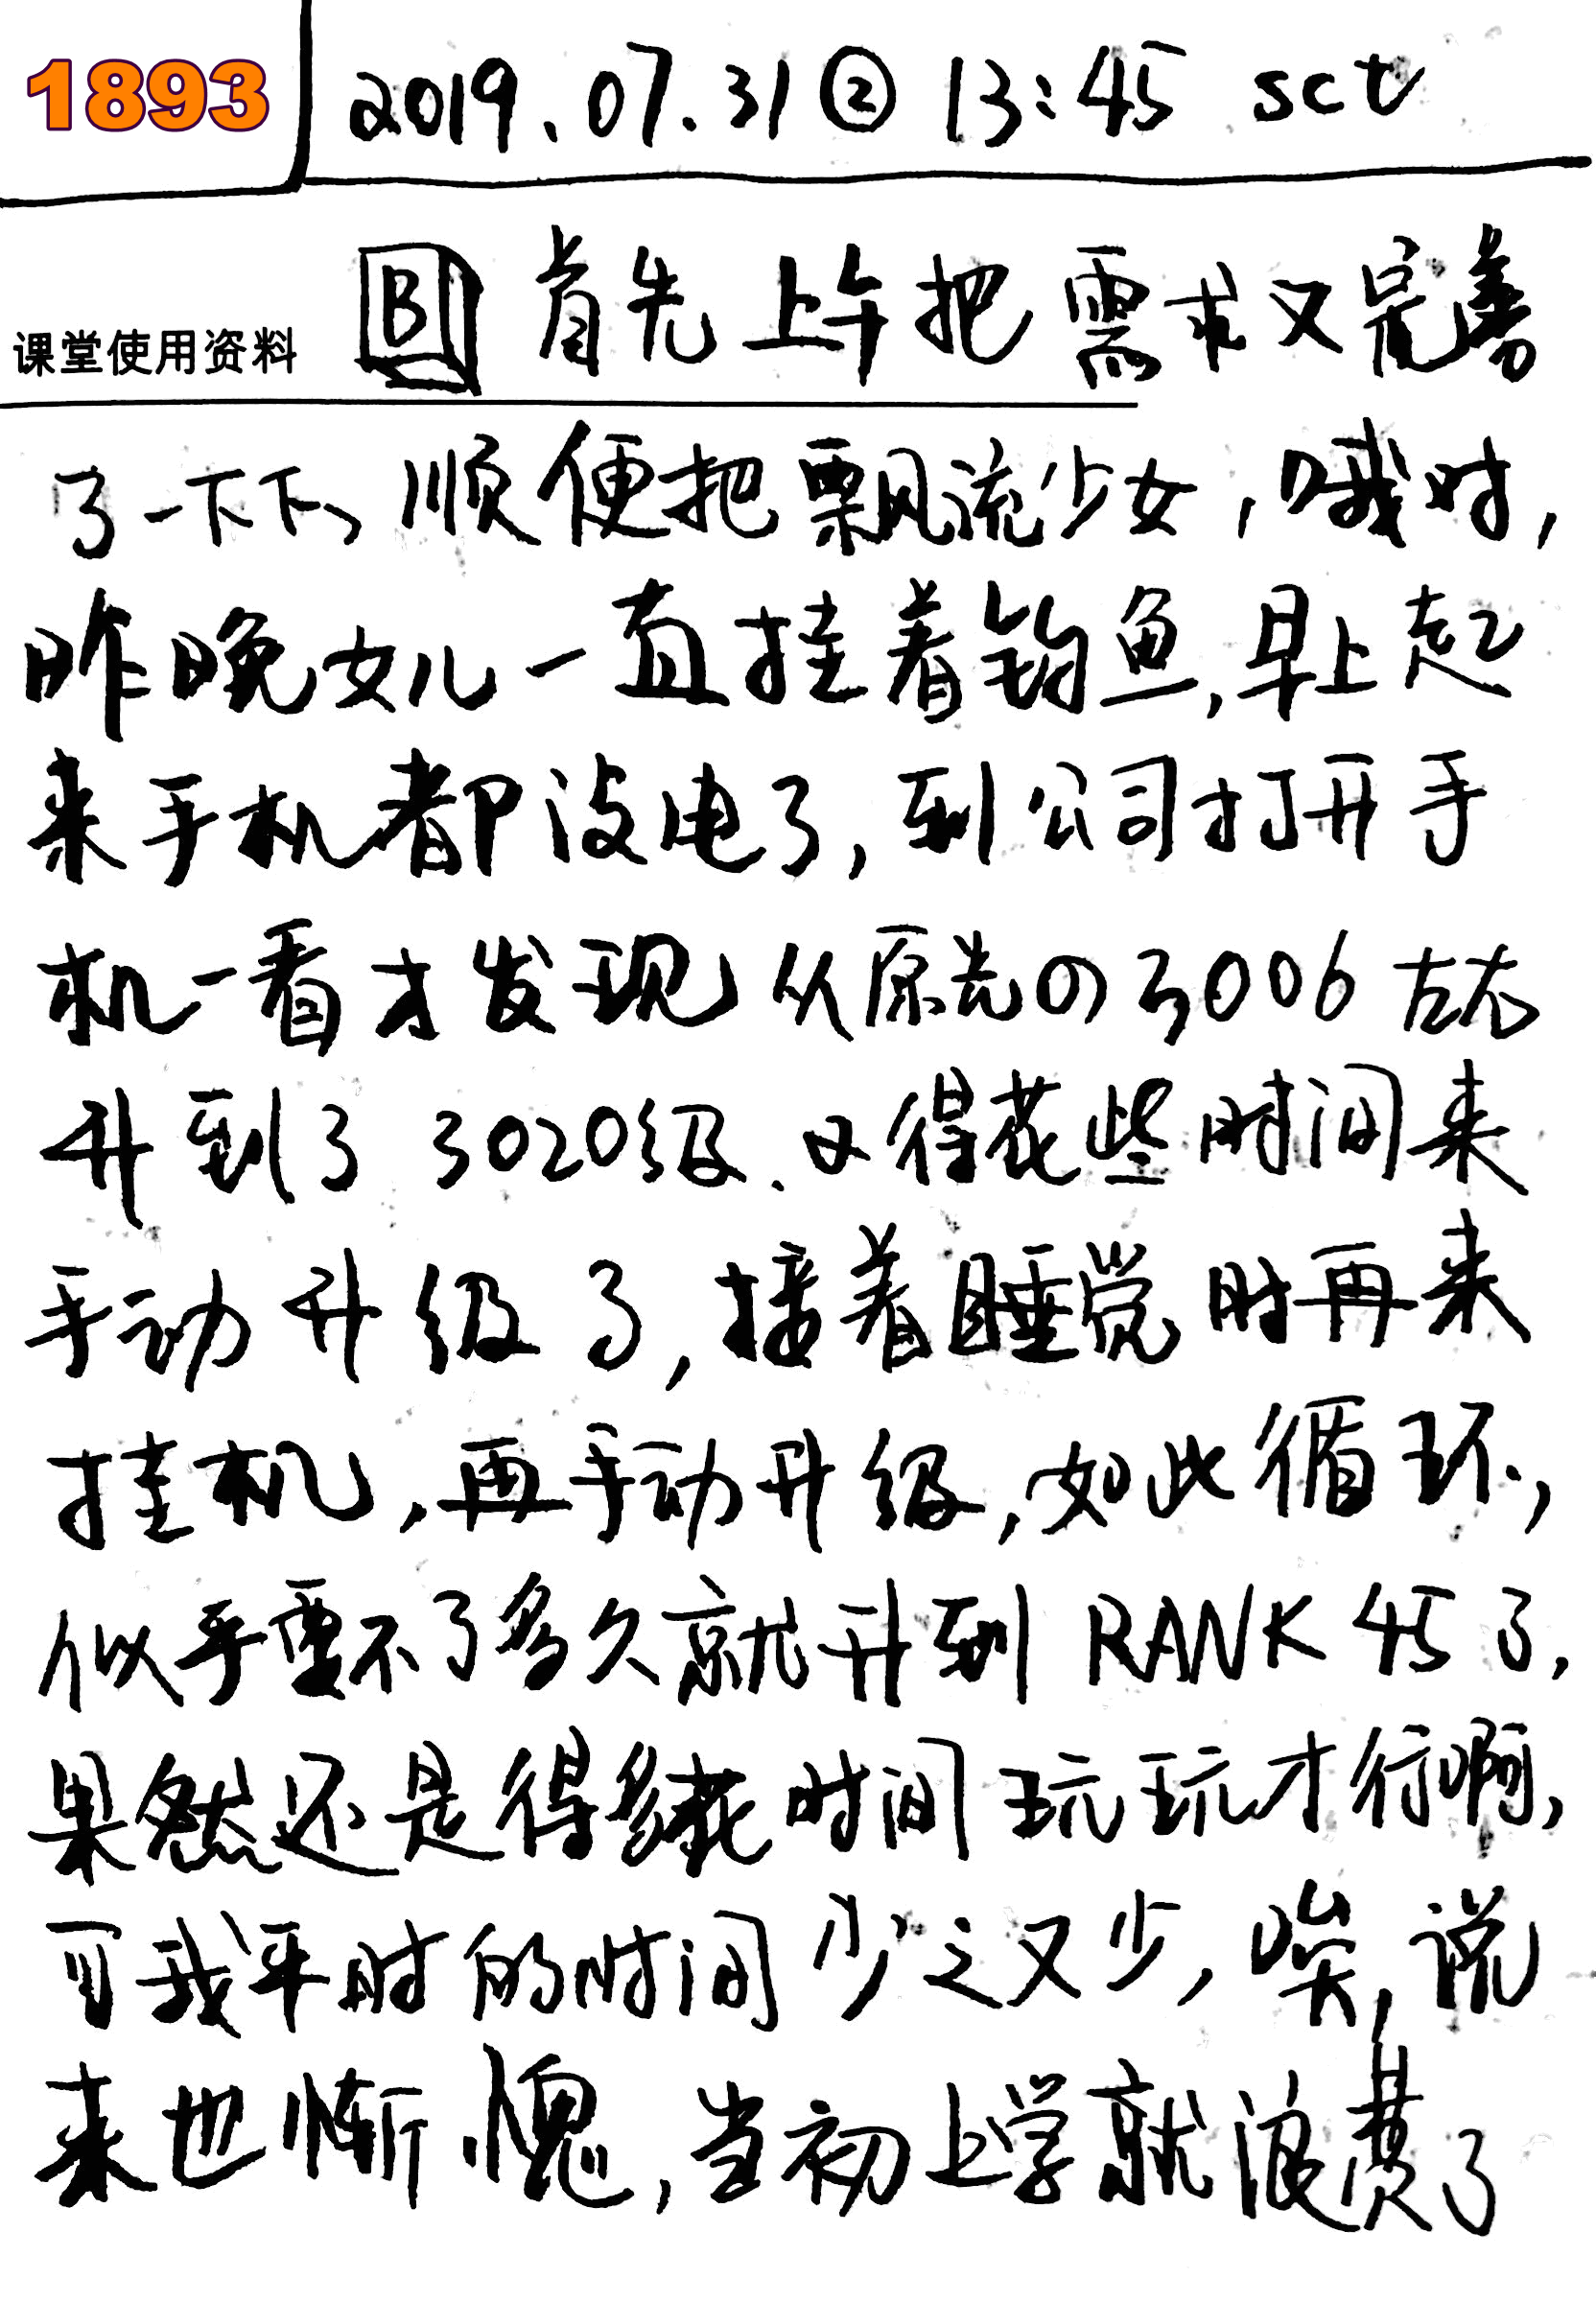 1893
2019.07.31② 13:45 sct
课堂使用资料
B 首先上午把需求又完善
了一下下、顺便把飘流少女,哦对,
昨晚女儿一直挂着钓鱼,早上起
来手机都没电了,到公司打开手
机一看才发现从原先の3006左右
升到了3020级.又得花些时间来
手动升级了,接着睡觉时再来
挂机,再手动升级,如此循环,
似乎要不了多久就升到RANK45了,
果然还是得多花时间玩玩才行啊,
可我平时的时间少之又少,唉,说
来也惭愧,当初上学就浪费了